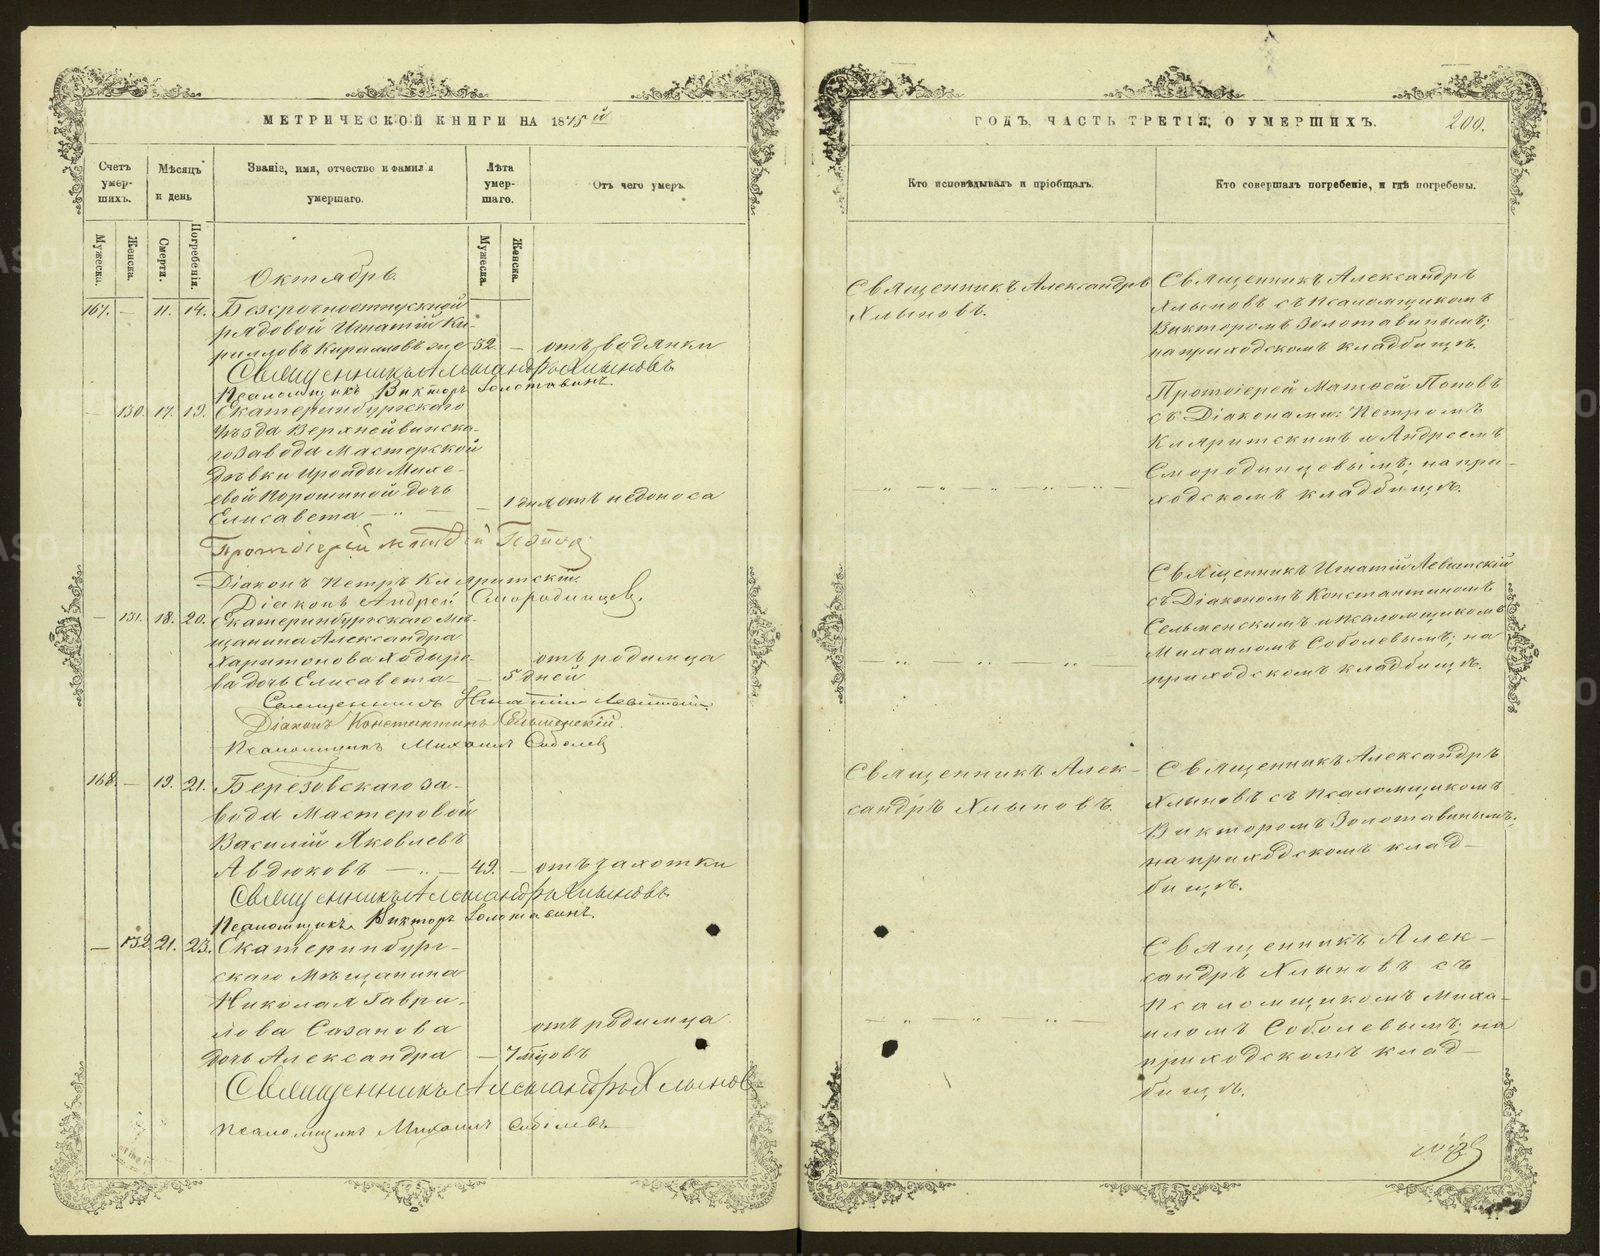 МЕТРИЧЕСКОЙ КНИГИ НА 1875й
Счетъ умер- шихъ.
Мѣсяцъ и день
Званіе, имя, отчество и фамилія умершаго.
Лѣта умер- шаго.
Отъ чего умеръ.
Мужеска. Женска. Смерти. Погребенія. Мужеска. Женска.
Октябрь
167. — 11. 14. Безсрочноотпускной
рядовой Игнатій Ки-
рилловъ Кирилловъ же 52. — отъ водянки
Священникъ Александръ Хлыновъ
Псаломщикъ Викторъ Золотавинъ.
— 130. 17. 19. Екатеринбургскаго
уѣзда Верхнейвинска-
го завода Мастерской
дѣвки Ироиды Михе-
евой Порошиной дочь
Елисавета — „ — — 1 дня отъ недоноса
Протоіерей Матѳей Поповъ
Діаконъ Петръ Кляритскій
Діаконъ Андрей Смородинцевъ.
— 131. 18. 20. Екатеринбургскаго мѣ-
щанина Александра
Харитонова Ходыре- отъ родимца
ва дочь Елисавета — — 5 дней
Священникъ Игнатій Левитскій
Діаконъ Константинъ Сельменскій.
Псаломщикъ Михаилъ Соболевъ
168. — 19. 21. Березовскаго за-
вода Мастеровой
Василій Яковлевъ
Авдюковъ — „ — 49. — отъ чахотки
Священникъ Александръ Хлыновъ
Псаломщикъ Викторъ Золотавинъ.
— 132 21. 23. Екатеринбург-
скаго мѣщанина
Николая Гаври-
лова Сазанова отъ родимца
дочь Александра — 7 мцовъ
Священникъ Александръ Хлыновъ
Псаломщикъ Михаилъ Соболевъ
ГОДЪ, ЧАСТЬ ТРЕТІЯ, О УМЕРШИХЪ. 200.
Кто исповѣдывалъ и пріобщалъ.
Кто совершалъ погребеніе, и гдѣ погребены.
Священникъ Александръ
Хлыновъ.
Священникъ Александръ
Хлыновъ съ псаломщикомъ
Викторомъ Золотавинымъ;
на приходскомъ кладбищѣ.
Протоіерей Матѳей Поповъ
съ Діаконами: Петромъ
Кляритскимъ и Андреемъ
Смородинцевымъ; на при-
ходскомъ кладбищѣ.
— „ — „ — „ — „ —
Священникъ Игнатій Левитскій
съ Діакономъ Константиномъ
Сельменскимъ и псаломщикомъ
Михаиломъ Соболевымъ; на
приходскомъ кладбищѣ.
— „ — „ — „ —
Священникъ Алек-
сандръ Хлыновъ.
Священникъ Александръ
Хлыновъ съ псаломщикомъ
Викторомъ Золотавинымъ;
на приходскомъ клад-
бищѣ.
Священникъ Алек-
сандръ Хлыновъ съ
Псаломщикомъ Миха-
иломъ Соболевымъ; на
приходскомъ клад-
бищѣ.
— „ — „ — „ —
METRIKI.GASO-URAL.RU